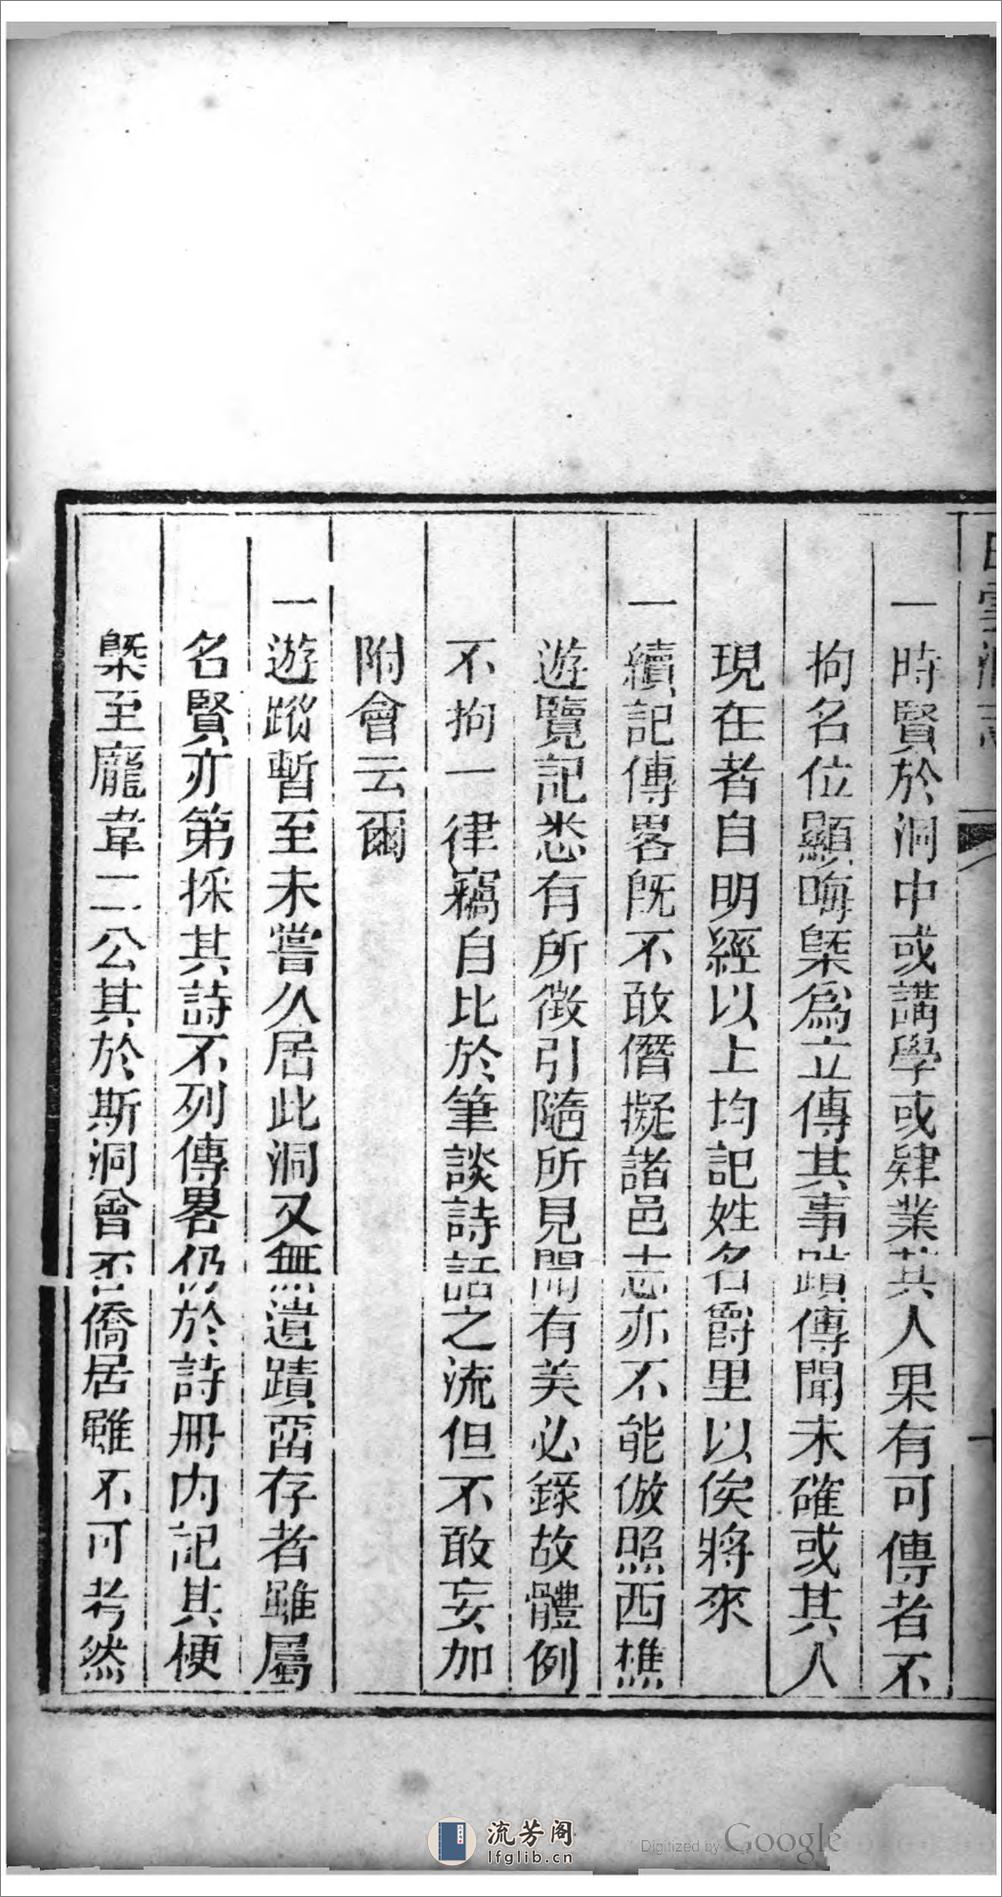 一時賢於洞中或講學或肄業其人果有可傳者不
拘名位顯晦槩爲立傳其事蹟傳聞未確或其人
現在者自明經以上均記姓名爵里以俟將來
一續記傳畧旣不敢僭擬諸邑志亦不能倣照西樵
遊覽記悉有所徵引隨所見聞有美必錄故體例
不拘一律竊自比於筆談詩話之流但不敢妄加
附會云爾
一遊蹤暫至未嘗久居此洞又無遺蹟畱存者雖屬
名賢亦第採其詩不列傳畧仍於詩冊內記其梗
槩至龐韋二公其於斯洞曾否僑居雖不可考然
流芳阁
lfglib.cn
Digitized by Google